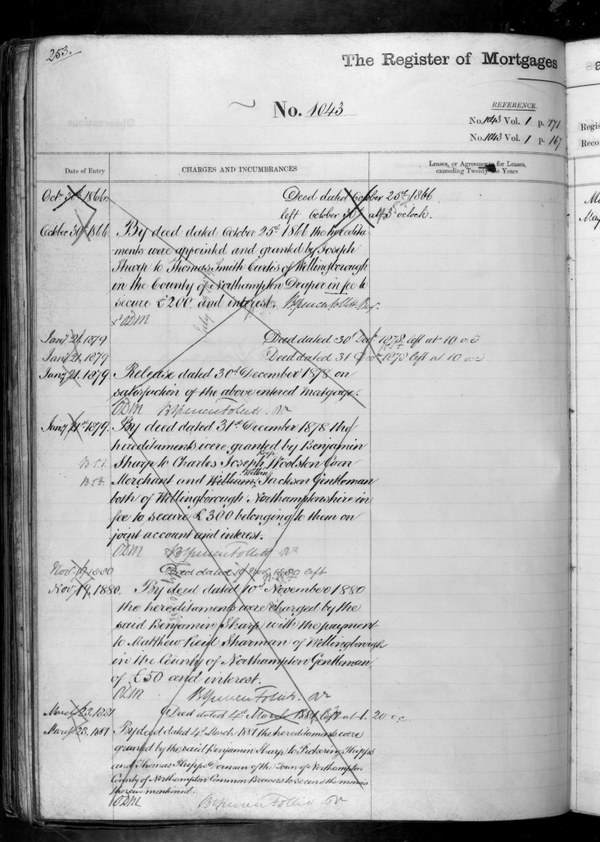 253.
The Register of Mortgages
No. 1043
REFERENCE.
No. 1043 Vol. 1 p. 171
No. 1043 Vol. 1 p. 167
Date of Entry
CHARGES AND INCUMBRANCES
Leases, or Agreements for Leases, exceeding Twenty-one Years
Octr 30th 1866 Deed dated October 25th 1866
left October 30th at 3 o'clock.
October 30th 1866 By deed dated October 25th 1866 the heredita
ments were appointed and granted by Joseph
Sharp to Thomas Smith Curtis of Wellingborough
in the County of Northampton Draper in fee to
secure £200 and interest.
ODM
Jany 21. 1879 Deed dated 30 Decr 1878 left at 10 o.c
Jany 21. 1879 Deed dated 31 Decr 1878 left at 10 o.c
Jany 21. 1879 Release dated 30th December 1878 on
satisfaction of the above entered Mortgage.
ODM
Jany 21st 1879. By deed dated 31st December 1878 the
hereditaments were granted by Benjamin
Sharp to Charles Joseph Woolston Corn
Merchant and William Jackson Gentleman
both of Wellingborough Northamptonshire in
fee to secure £300 belonging to them on
joint account and interest.
ODM
Nov. 1880 Deed dated 10 Nov. 1880 left
Nov. 19, 1880. By deed dated 10th November 1880
the hereditaments were charged by the
said Benjamin Sharp with the payment
to Matthew Reid Sharman of Wellingborough
in the County of Northampton Gentleman
of £50 and interest.
ODM
March 23. 1881 Deed dated 4th March 1881 left at 1. 20 o.c.
March 23. 1881 By deed dated 4th March 1881 the hereditaments were
granted by the said Benjamin Sharp to Pickering Phipps
and Thomas Phipps of the Town of Northampton
County of Northampton Common Brewers to secure the monies
therein mentioned.
ODM